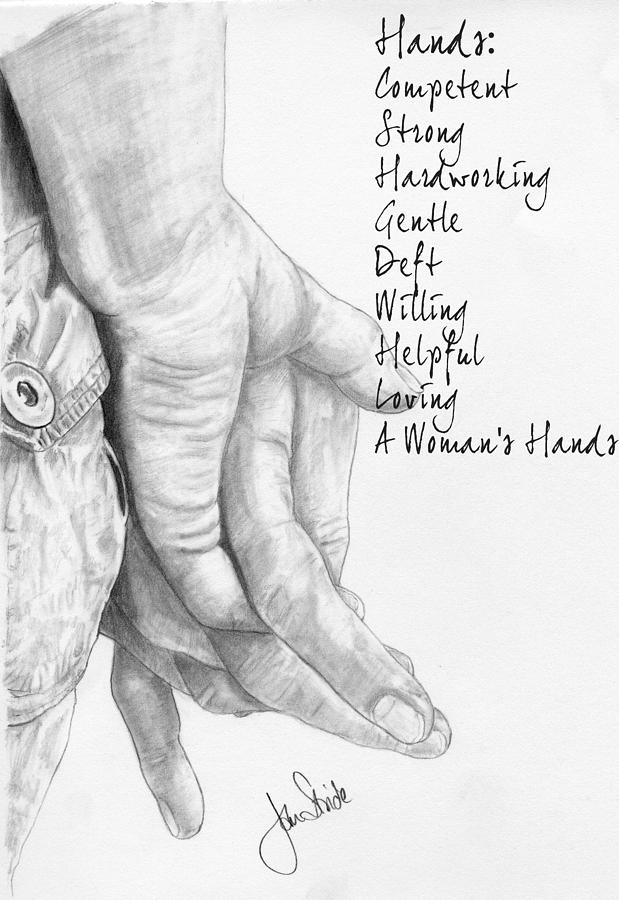 Hands:
Competent
Strong
Hardworking
Gentle
Deft
Willing
Helpful
Loving
A Woman's Hands
Jan Stride